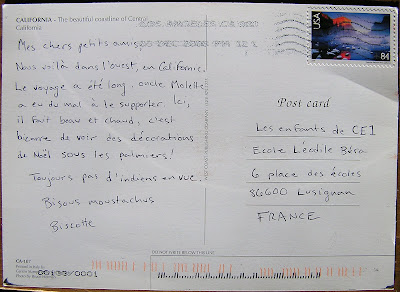 CALIFORNIA - The beautiful coastline of Central
California
Mes chers petits amis,
Nous voilà dans l'ouest, en Californie.
Le voyage a été long, oncle Molette
a eu du mal à le supporter. Ici,
il fait beau et chaud, c'est
bizarre de voir des décorations
de Noël sous les palmiers!
Toujours pas d'indiens en vue.
Bisous moustachus
Biscotte
CA-107
00133/0001
LOS ANGELES CA
DEC 2006 PM
USA
84
Post card
Les enfants de CE1
Ecole Léodile Béra
6 place des écoles
86600 Lusignan
FRANCE
DO NOT WRITE BELOW THIS LINE